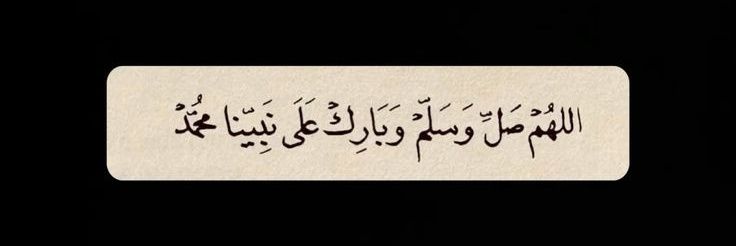 اللهُمْ صَلِّ وَسَلّمْ وَبَارِكْ عَلَى نَبِيّنا محمُّدْ